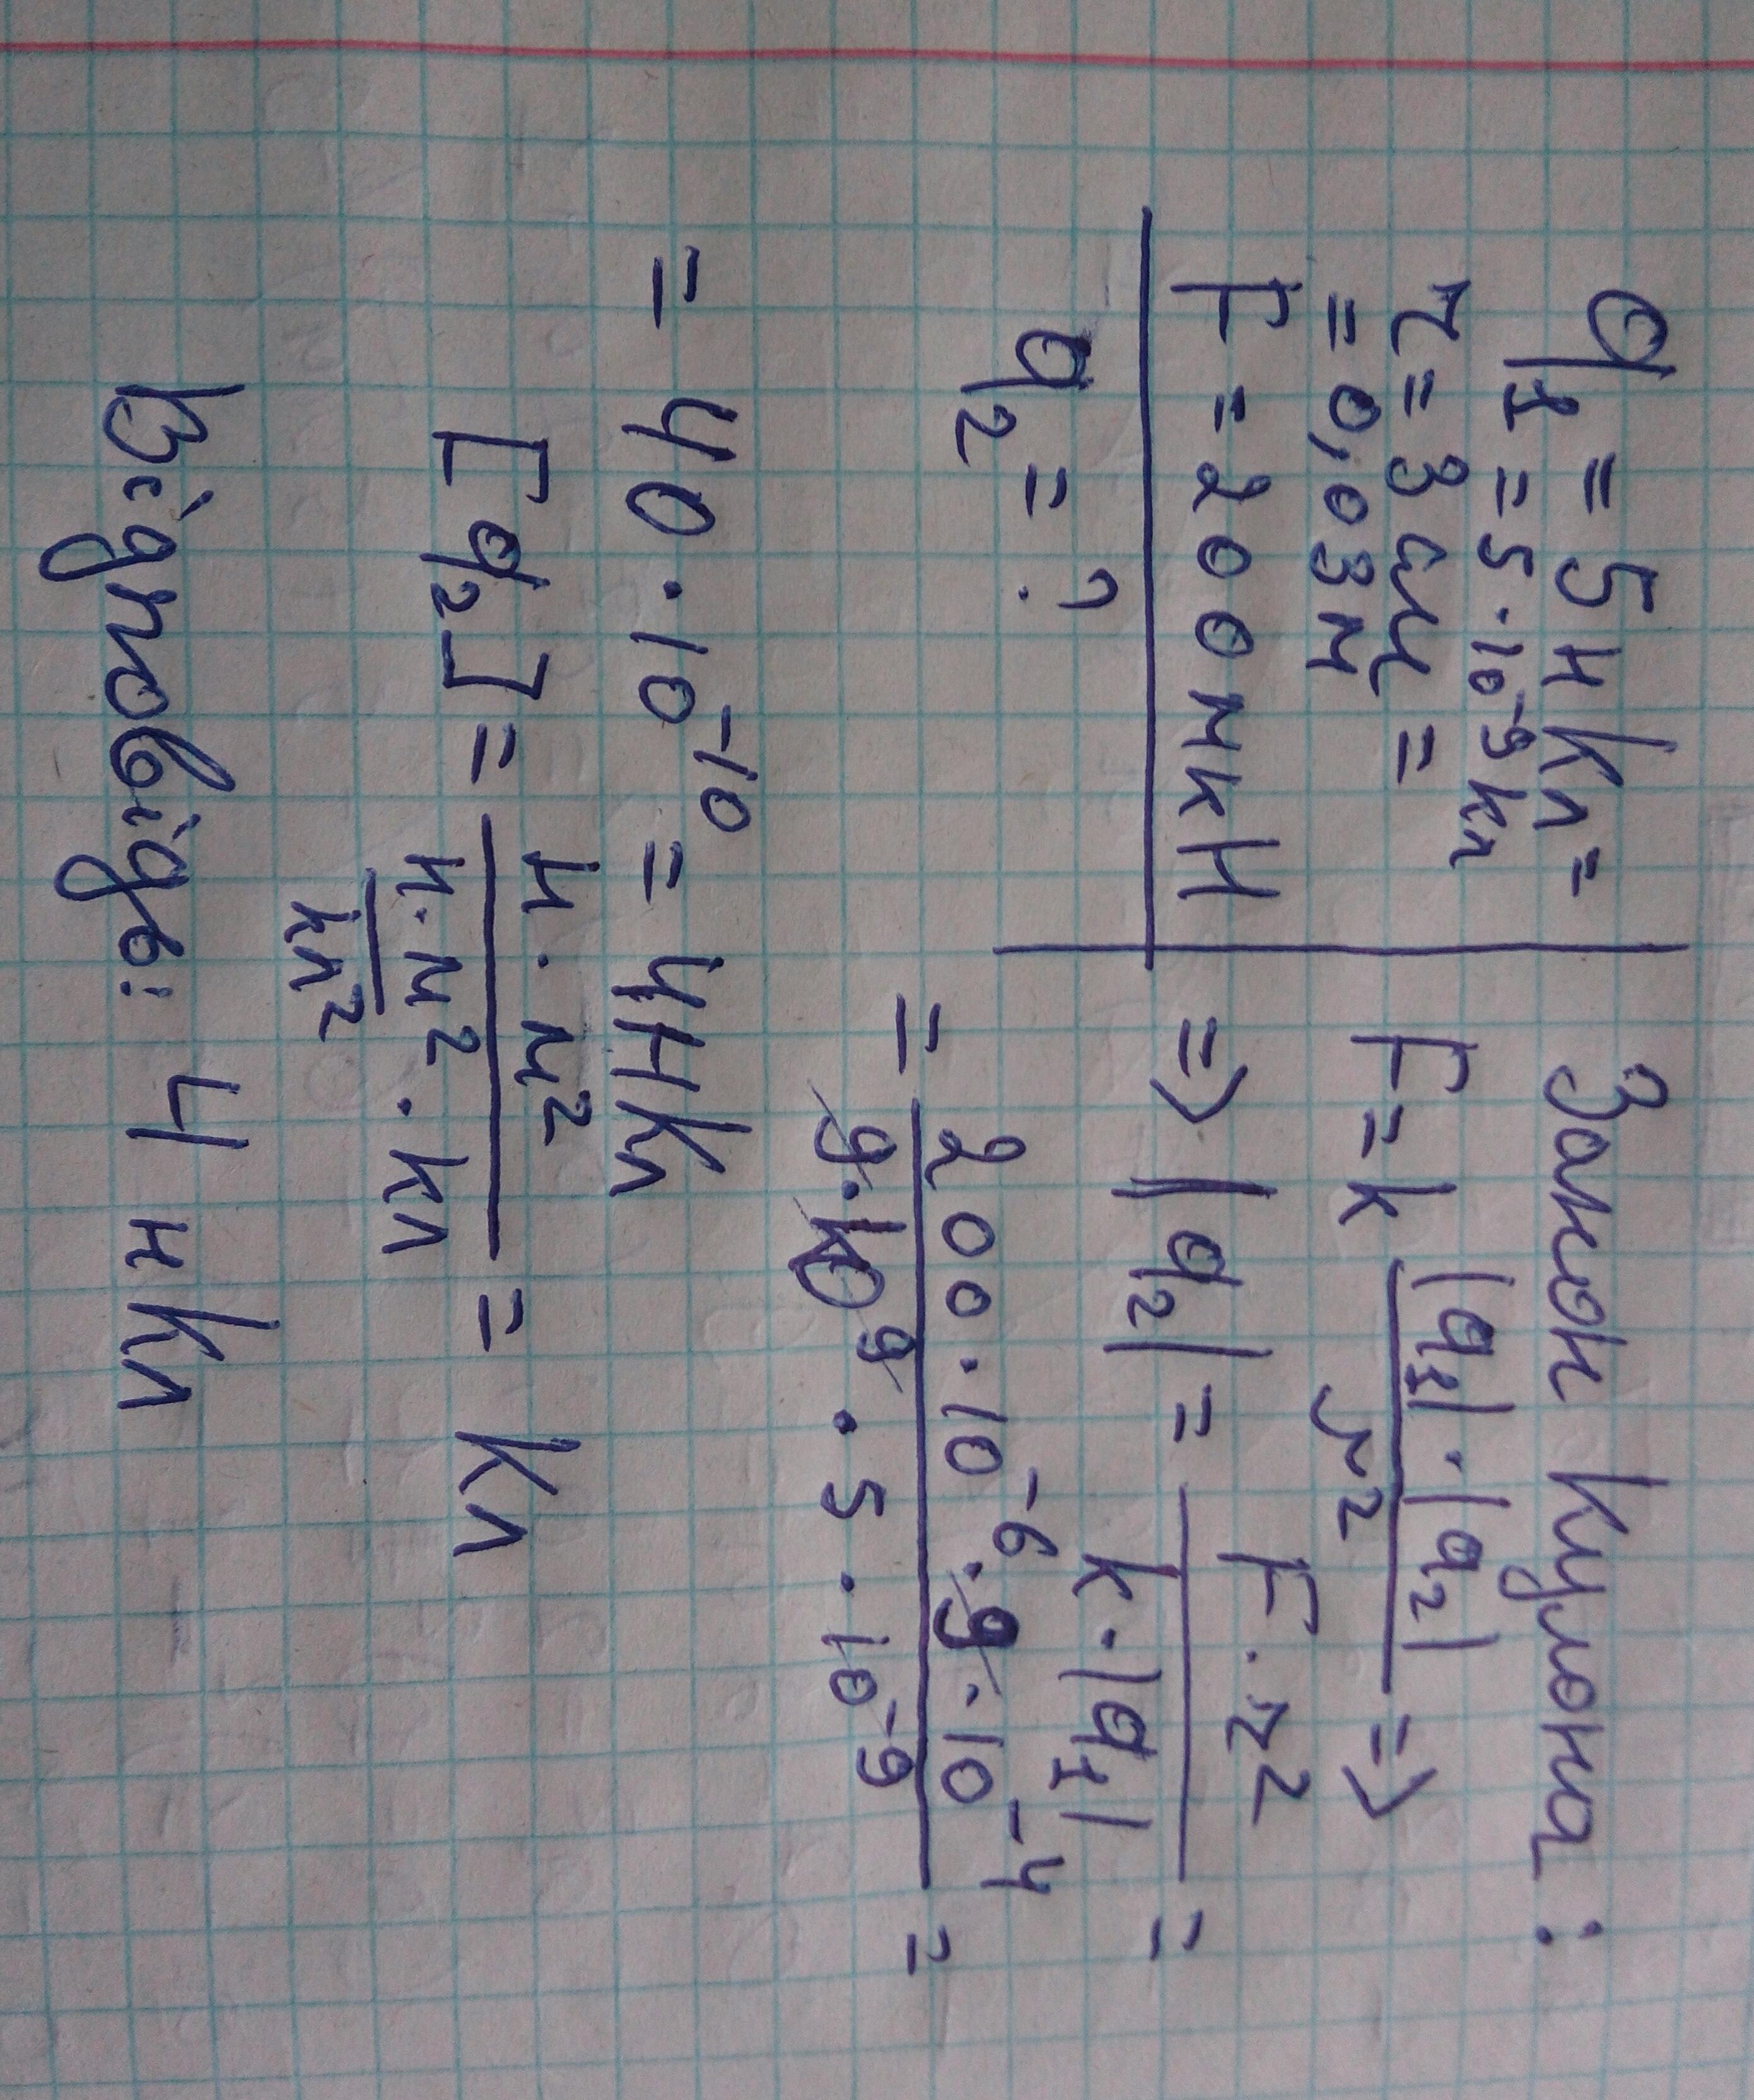 q₁ = 5 нКл =
= 5 · 10⁻⁹ кл
r = 3 см =
= 0,03 м
F = 200 мкН
q₂ = ?
Закон Кулона :
F = k |q₁| · |q₂| / r² =>
=> |q₂| = F · r² / k · |q₁| =
= 200 · 10⁻⁶ · 9 · 10⁻⁴ / 9 · 10⁹ · 5 · 10⁻⁹ =
= 40 · 10⁻¹⁰ = 4 нКл
[q₂] = н · м² / н · м² / кл² · кл = Кл
Відповідь: 4 нКл